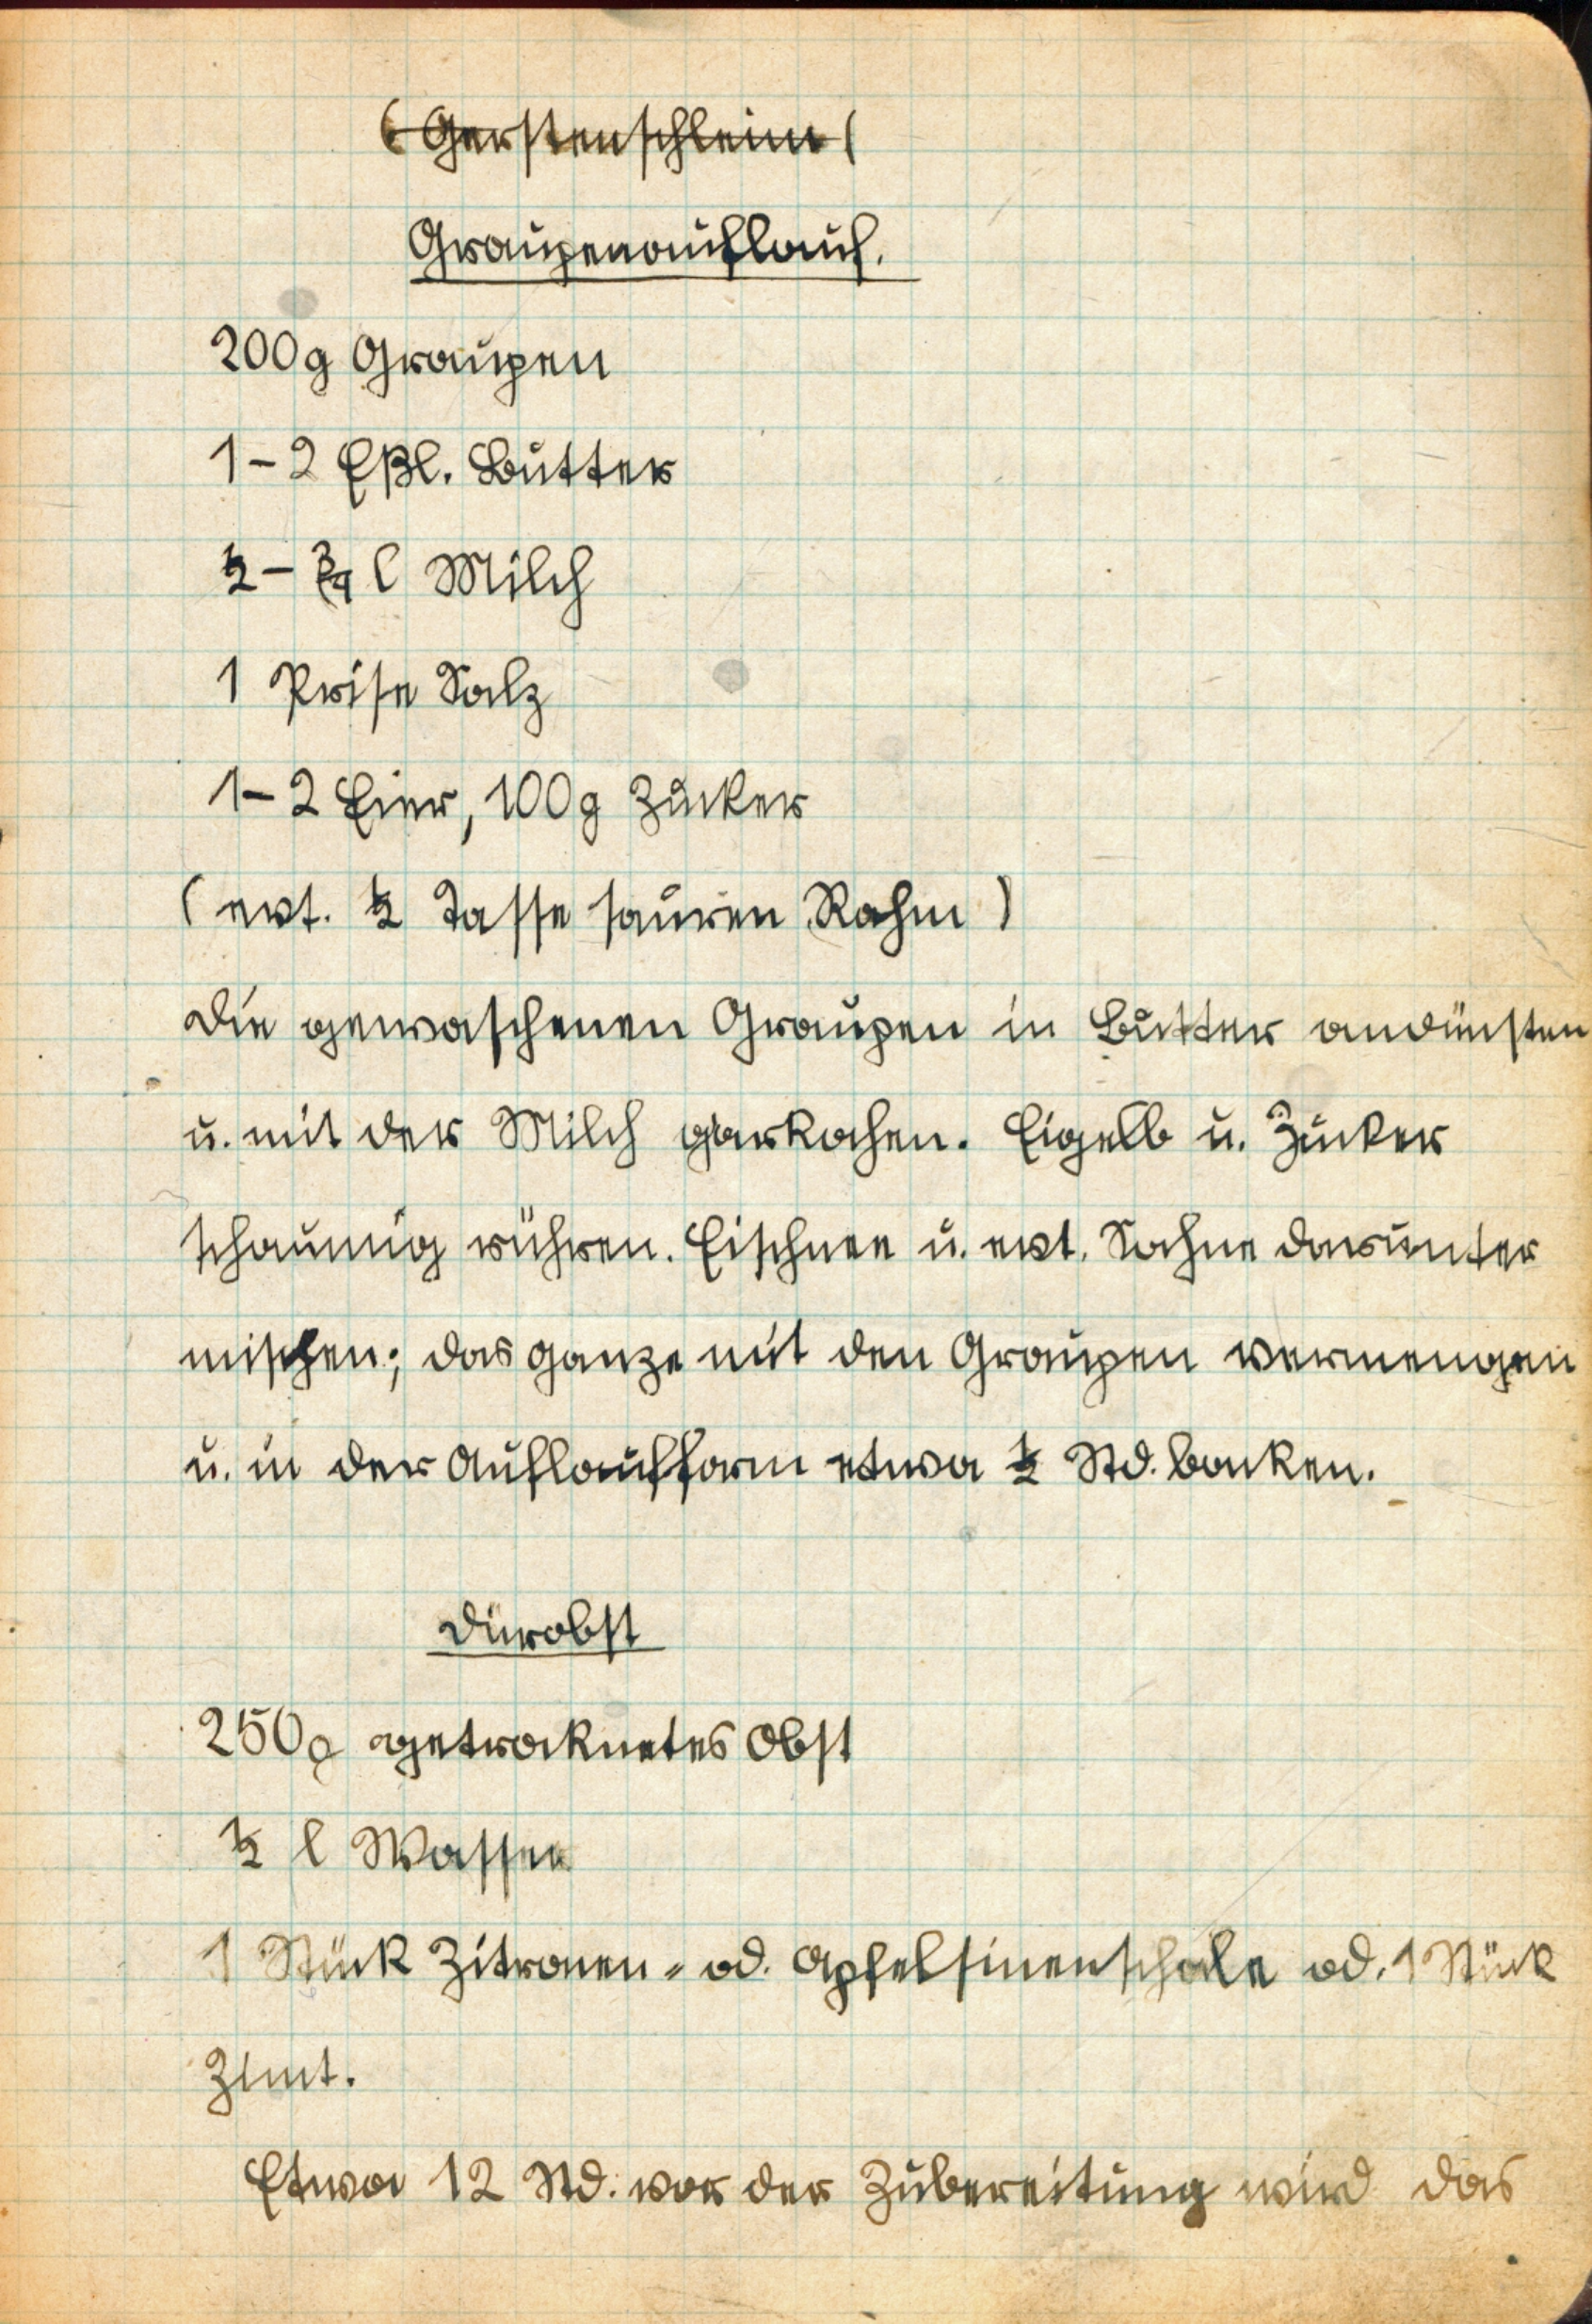 (Gerstenschleim(
Graupenauflauf.
200g Graupen
1-2 Eßl. Butter
½ - ¾ l Milch
1 Prise Salz
1-2 Eier, 100g Zucker
(evt. ½ Tasse sauren Rahm)
Die gewaschenen Graupen in Butter andünsten
u. mit der Milch garkochen. Eigelb u. Zucker
schaumig rühren. Eischnee u. evt. Sahne darunter
mischen; das ganze mit den Graupen vermengen
u. in der Auflaufform etwa ½ Std. backen.
Dürobst
250g getrocknetes Obst
½ l Wasser
1 Stück Zitronen- od. Apfelsinenschale od. 1 Stück
Zimt.
Etwa 12 Std. vor der Zubereitung wird das